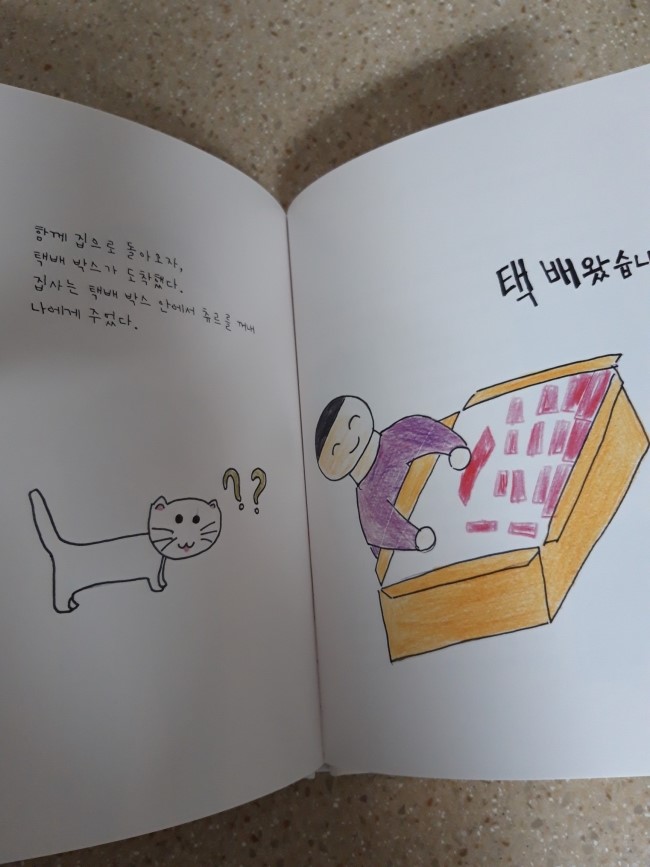 함께 집으로 돌아오자,
택배 박스가 도착했다.
집사는 택배 박스 안에서 츄르를 꺼내
나에게 주었다.
??
택배왔습니